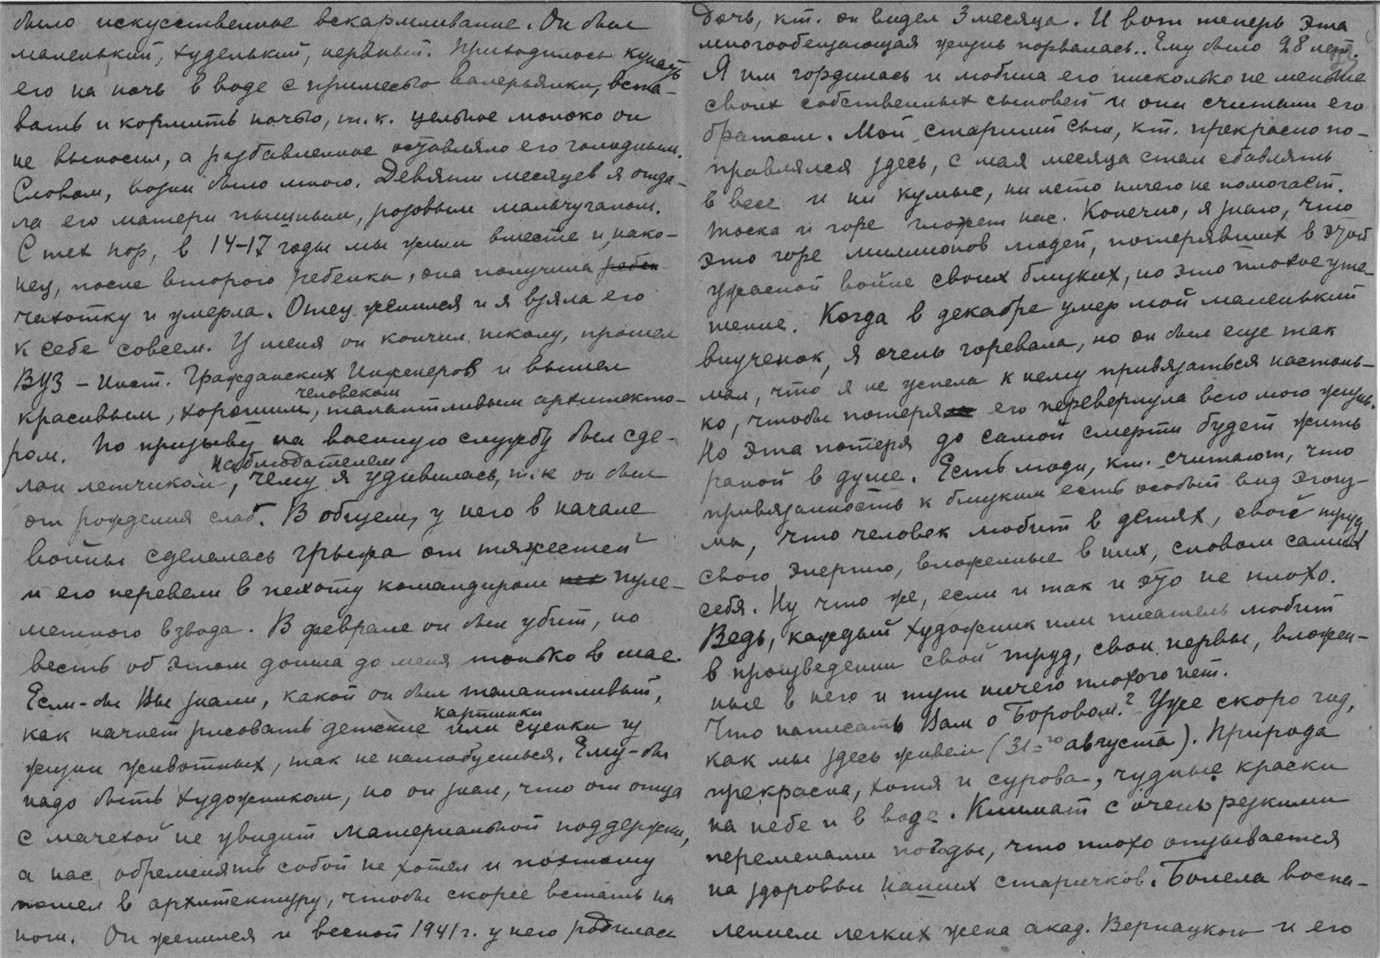 было искусственное вскармливание. Он был
маленький, худенький, нервный. Приходилось купать
его на ночь в воде с примесью валерьянки, вста-
вать и кормить ночью, т.к. цельное молоко он
не выносил, а разбавленное оставляло его голодным.
Словом, возни было много. Девяти месяцев я отда-
ла его матери пышным, розовым мальчуганом.
С тех пор, в 14-17 годы мы жили вместе и, нако-
нец, после второго ребенка, она получила ребен
чахотку и умерла. Отец женился и я взяла его
к себе совсем. У меня он кончил школу, прошел
ВУЗ – Инст. Гражданских Инженеров и вышел
человеком
красивым, хорошим, талантливым архитекто-
ром. По призыву на военную службу был сде-
наблюдателем
лан летчиком, чему я удивилась, т.к. он был
от рождения слаб. В общем, у него в начале
войны сделалась грыжа от тяжестей
и его перевели в пехоту командиром пуле-
метного взвода. В феврале он был убит, но
весть об этом дошла до меня только в мае.
Если-бы Вы знали, какой он был талантливый,
картинки
как начнет рисовать детские или сценки из
жизни животных, так не налюбуешься. Ему-бы
надо быть художником, но он знал, что от отца
с мачехой не увидит материальной поддержки,
а нас обременять собой не хотел и поэтому
пошел в архитектуру, чтобы скорее встать на
ноги. Он женился и весной 1941 г. у него родилась
дочь, кт. он видел 3 месяца. И вот теперь эта
многообещающая жизнь порвалась.. Ему было 28 лет.
Я им гордилась и любила его нисколько не меньше
своих собственных сыновей и они считали его
братом. Мой старший сын, кт. прекрасно по-
правлялся здесь, с мая месяца стал сбавлять
в весе и ни кумыс, ни лето ничего не помогает.
Тоска и горе гложет нас. Конечно, я знаю, что
это горе миллионов людей, потерявших в этой
ужасной войне своих близких, но это плохое уте-
шение. Когда в декабре умер мой маленький
внученок, я очень горевала, но он был еще так
мал, что я не успела к нему привязаться настоль-
ко, чтобы потеря его перевернула всю мою жизнь.
Но эта потеря до самой смерти будет жить
раной в душе. Есть люди, кт. считают, что
привязанность к близким есть особый вид эгоиз-
ма, что человек любит в детях, свой труд
свою энергию, вложенные в них, словом самих
себя. Ну что же, если и так и это не плохо.
Ведь, каждый художник или писатель любит
в произведении свой труд, свои нервы, вложен-
ные в него и тут ничего плохого нет.
Что написать Вам о Боровом? Уже скоро год,
как мы здесь живем (31-го августа). Природа
прекрасна, хотя и сурова, чудные краски
на небе и в воде. Климат с очень резкими
переменами погоды, что плохо отзывается
на здоровьи наших старичков. Болела воспа-
лением легких жена акад. Вернадского и его